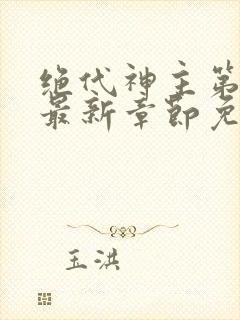 绝代神主第
最新章节免
玉洪